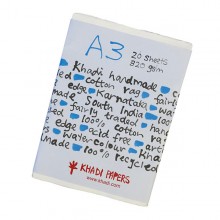 A3 20 sheets
320 gsm
Khadi handmade
cotton rag
edge Karnataka
made South India
fairly traded
100% cotton
edge acid free
watercolour
made 100% recycled
KHADI PAPERS
www.khadi.com